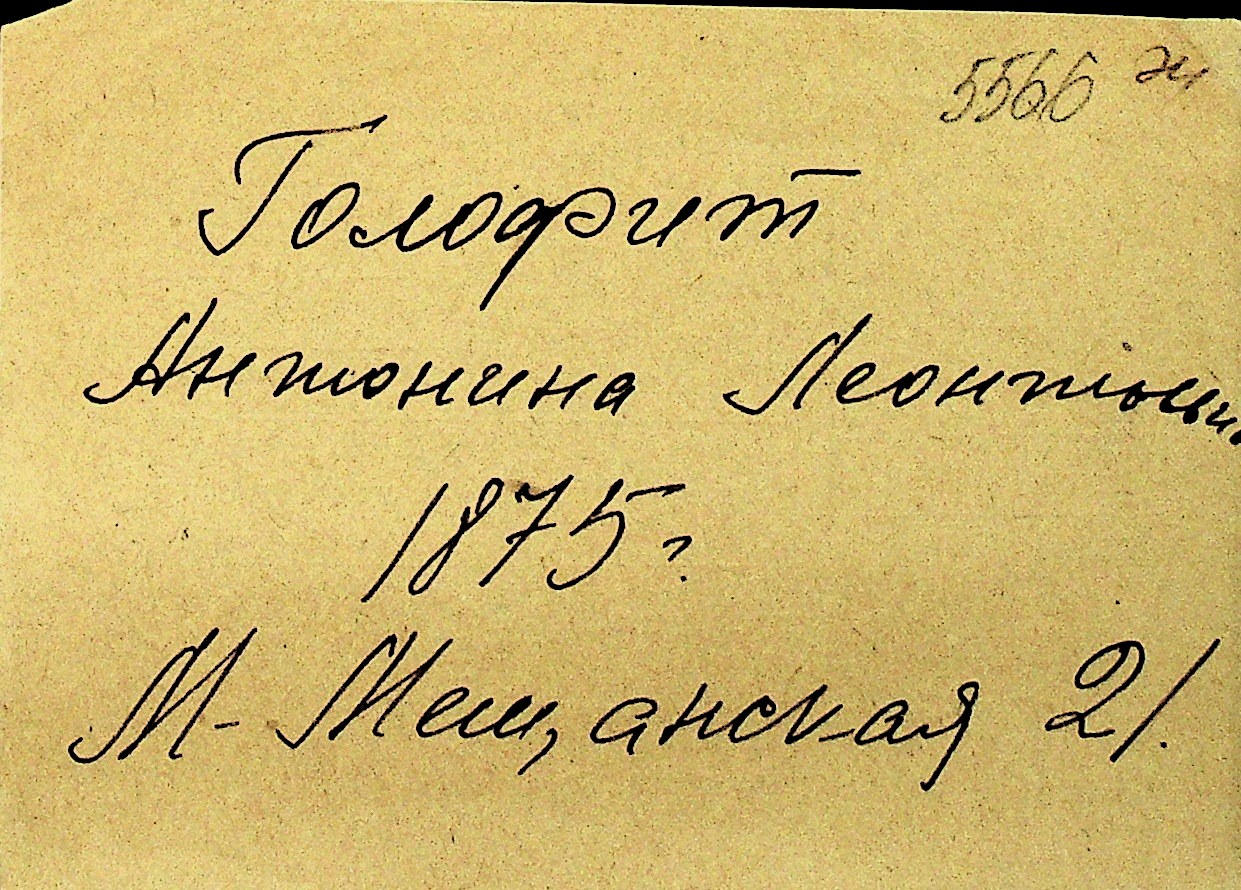 5566
Голофит
Антонина Леонтьевн
1875 г
М-Мещанская 21.